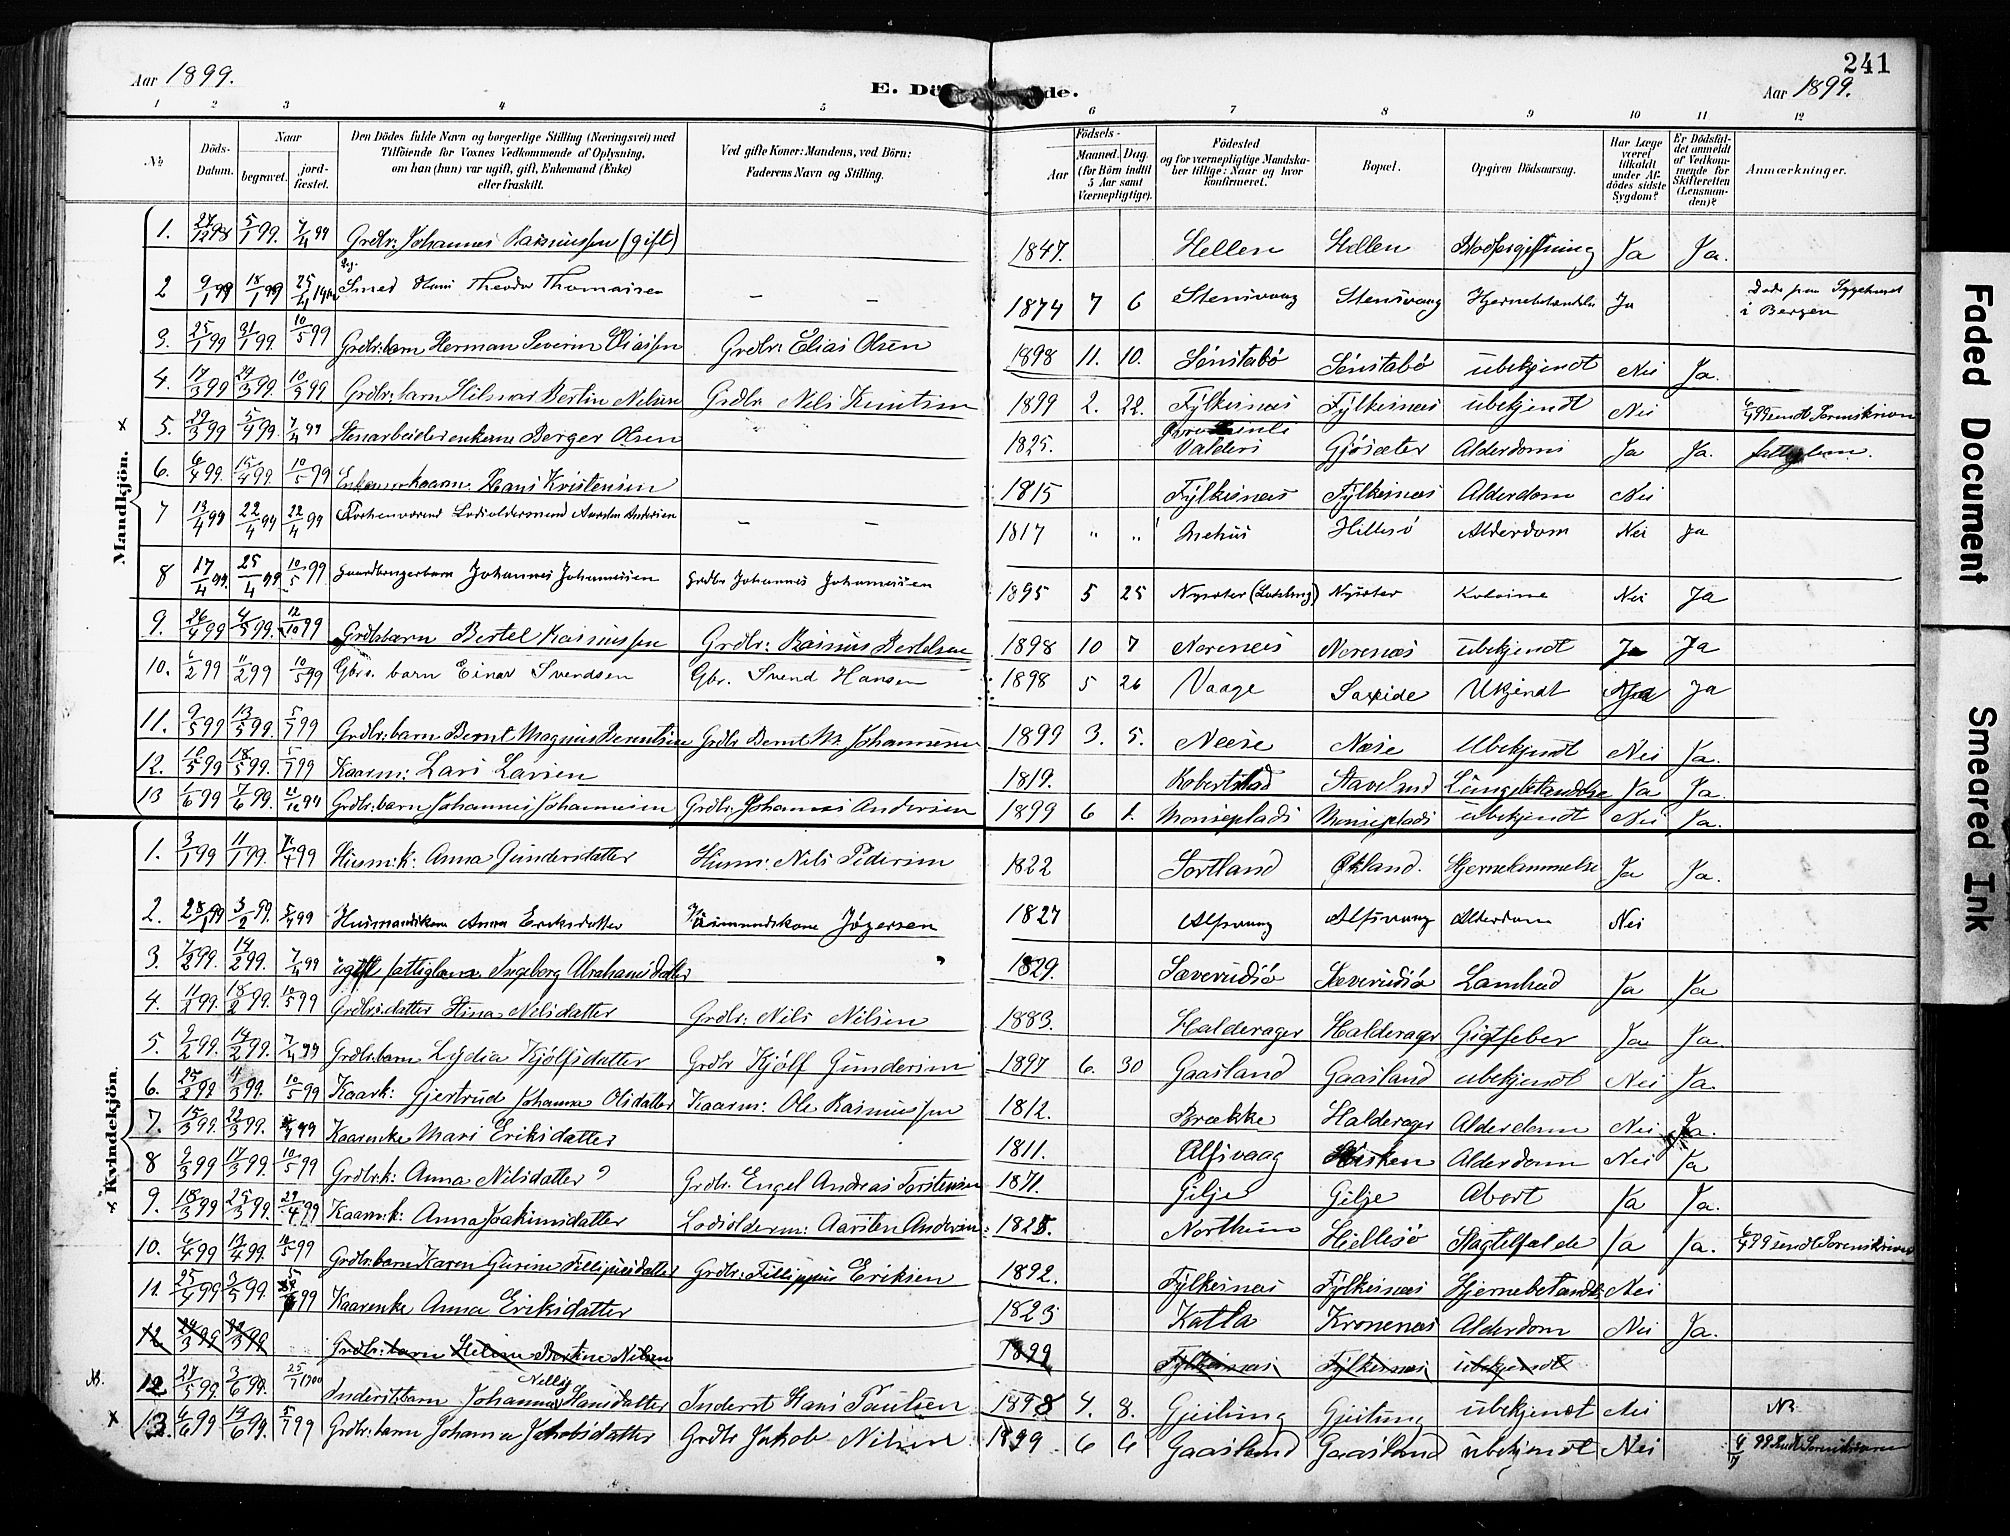 241
Aar 1899.
E. Dö de.
Aar 1899.
1 2 3 4 5 6 7 8 9 10 11 12
№
Döds-Datum.
Naar
begravet.
jord-fæstet.
Den Dödes fulde Navn og borgerlige Stilling (Næringsvei) med
Tilföiende for Voxnes Vedkommende af Oplysning,
om han (hun) var ugift, gift, Enkemand (Enke)
eller fraskilt.
Ved gifte Koner: Mandens, ved Börn:
Faderens Navn og Stilling.
Födsels-
Aar
Maaned. Dag.
(for Börn indtil
5 Aar samt
Værnepligtige).
Födested
og for værnepligtige Mandska-
ber tillige: Naar og hvor
konfirmeret.
Bopæl.
Opgiven Dödsaarsag.
Har Læge
været
tilkaldt
under Af-
dödes sidste
Sygdom?
Er Dödsfal-
det anmeldt
af Vedkom-
mende for
Skifteretten
(Lensman-
den)?
Anmærkninger.
Mandkjön.
1. 27/12 98 5/1 99. 7/4 99 Grdbr: Johannes Rasmussen (gift) 1847. Hellen Hellen Blodforgiftning Ja Ja.
2 9/1 99 18/1 99 25/4 Smed Hans Theodor Thomassen — — 1874 7 6 Stensvaag Stensvaag Hjernebetændelse Ja Døde paa Sygehuset
i Bergen
3. 25/1 99 31/1 99. 10/5 99 Grdbr: barn Herman Severin Eliassen Grdbr: Elias Olsen 1898 11. 10. Sønstabø Sønstabø ubekjendt Nei Ja.
4. 17/3 99 24/3 99. 10/5 99 Grdbr: barn Hilmar Bertin Nilsen Grdbr Nils Knutsen 1899 2. 22. Fylkesnæs Fylkesnæs ubekjendt Nei 6/4 99 sendt Sorenskriven
x 5. 29/3 99 5/4 99. 7/4 99 Stenarbeider enkem Berger Olsen 1825. Valders Gjøsæter Alderdom Ja Ja. fattiglem.
6. 6/4 99. 15/4 99. 10/5 99 Enkem kaarm. Hans Kristensen 1815 Fylkesnæs Fylkesnæs Alderdom Nei
7 13/4 99. 22/4 99 22/4 99 Forhenværend Lodsoldermand Aarsten Andersen — — 1817 " " Mehus Hillesø Alderdom Nei Ja
8 17/4 99. 25/4 99 10/5 99 Gaardbrugerbarn Johannes Johannessen Grdbr Johannes Johannessen 1895 5 25 Nysæter Nysæter Nei Ja
9. 26/4 99 4/5 99. 12/10 99 Grdbr barn Bertel Rasmussen Grdbr: Rasmus Bertelsen 1898 10 7 Norenæs Norenæs ubekjendt Ja Ja
10. 6/2 99 11/2 99 10/5 99 Gbrs. barn Einar Svendsen Gbr. Svend Hansen 1898 5 26 Vaage Saxeide Ukjendt Ja Ja
11. 9/5 99 13/5 99. 5/7 99 Grdbr: barn Bernt Magnus Berntsen Grdbr Bernt M. Johannesen 1899 3. 5. Næse Næse Ubekjendt Nei Ja.
12. 10/5 99 18/5 99. 5/7 99 Kaarm: Lars Larsen 1819. Robertstad Stavelund Lungebetændelse Ja Ja.
13 1/6 99 7/6 99. Grdbr: barn Johannes Johannesen Grdbr: Johannes Andersen 1899 6 1. Monseplads Monseplads ubekjendt Nei Ja.
Kvindekjön.
1. 3/1 99 11/1 99. 7/4 99 Husm:k: Anna Gundersdatter Husm: Nils Pedersen 1822 Sortland Økland. Hjernelammelse Ja Ja.
2. 28/1 99 3/2 99. 5/4 99 Husmandskone Anna Eriksdatter Husmandskone Jøgersen 1827 Alfsvaag Alfsvaag Alderdom Nei
3. 7/2 99. 14/2 99. 7/4 99 ugift fattiglem Ingeborg Abrahamsdatter 1829. Sæverudsø Sæverudsø Lamhed Ja Ja
4. 11/2 99. 18/2 99. 10/5 99 Grdbr:datter Stina Nilsdatter Grdbr: Nils Nilsen 1883. Halderager Halderager Gigtfeber Ja Ja.
5. 7/2 99. 14/2 99. 7/4 99 Grdbr:barn Lydia Kjølfsdatter Grdbr Kjølf Gundersen 1897 6. 30 Gaasland Gaasland ubekjendt Nei Ja.
6. 25/2 99 4/3 99. 10/5 99 Kaark: Gjertrud Johanna Olsdatter Kaarm: Ole Rasmussen 1812. Brække Halderager Alderdom Nei Ja.
7. 15/3 99. 22/3 99. 99 Kaarenke Mari Eriksdatter 1811. Alfsvaag Alderdom Nei Ja
8 9/3 99 17/3 99. 10/5 99 Grdbr.k: Anna Nilsdatter ? Grdbr. Engel Andreas Torstensen 1871. Gilje Gilje Abort Ja Ja.
9. 18/3 99 25/3 99. 29/4 99 Kaarm:k: Anna Joakimsdatter Lodsolderm: Aarsten Andersen: 1825. Northun Hillesø Slagtilfælde Ja Ja. 6/4 99 sendt Sorenskriven
10. 6/4 99 13/4 99. 10/5 99 Grdbr:barn Karen Gurine Fillipusdatter Grdbr: Fillippus Eriksen 1892. Fylkesnæs Fylkesnæs Hjernebetændels Nei
11 25/4 99 3/5 99. 99 Kaarenke Anna Eriksdatter 1823 Katla Kronenæs Alderdom Nei Ja.
12 24/3 99 99 Grdbr: barn Helene Bertine Nilsen 1899 Fylkesnæs Fylkesnæs ubekjendt
N. 12 27/5 99 3/6 99. 25/7 1900 Inderst:barn Johanna Nelly Hansdatter Inderst Hans Paulsen 1898 4. 8. Gjeitung Gjeitung ubekjendt Nei N.
x 13. 6/6 99 14/6 99. 5/7 99 Grdbr: barn Johanna Jakobsdatter Grdbr Jakob Nilsen 1899 6 6 Gaasland Gaasland ubekjendt Nei 6/7 99 Sendt Sorenskriveren
Faded Document
Smeared Ink